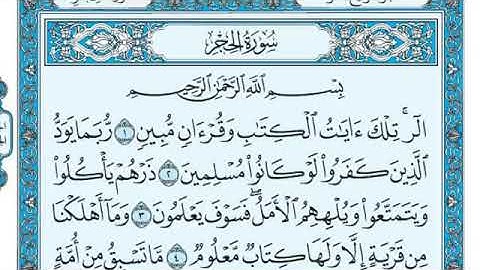 سُورَةُ الحِجْرِ
بِسْمِ اللَّهِ الرَّحْمَٰنِ الرَّحِيمِ
الٓر ۚ تِلْكَ ءَايَٰتُ الْكِتَٰبِ وَقُرْءَانٍ مُّبِينٍ ١ رُّبَمَا يَوَدُّ
الَّذِينَ كَفَرُوا۟ لَوْ كَانُوا۟ مُسْلِمِينَ ٢ ذَرْهُمْ يَأْكُلُوا۟
وَيَتَمَتَّعُوا۟ وَيُلْهِهِمُ الْأَمَلُ ۖ فَسَوْفَ يَعْلَمُونَ ٣ وَمَآ أَهْلَكْنَا
مِن قَرْيَةٍ إِلَّا وَلَهَا كِتَابٌ مَّعْلُومٌ ٤ مَّا تَسْبِقُ مِنْ أُمَّةٍ